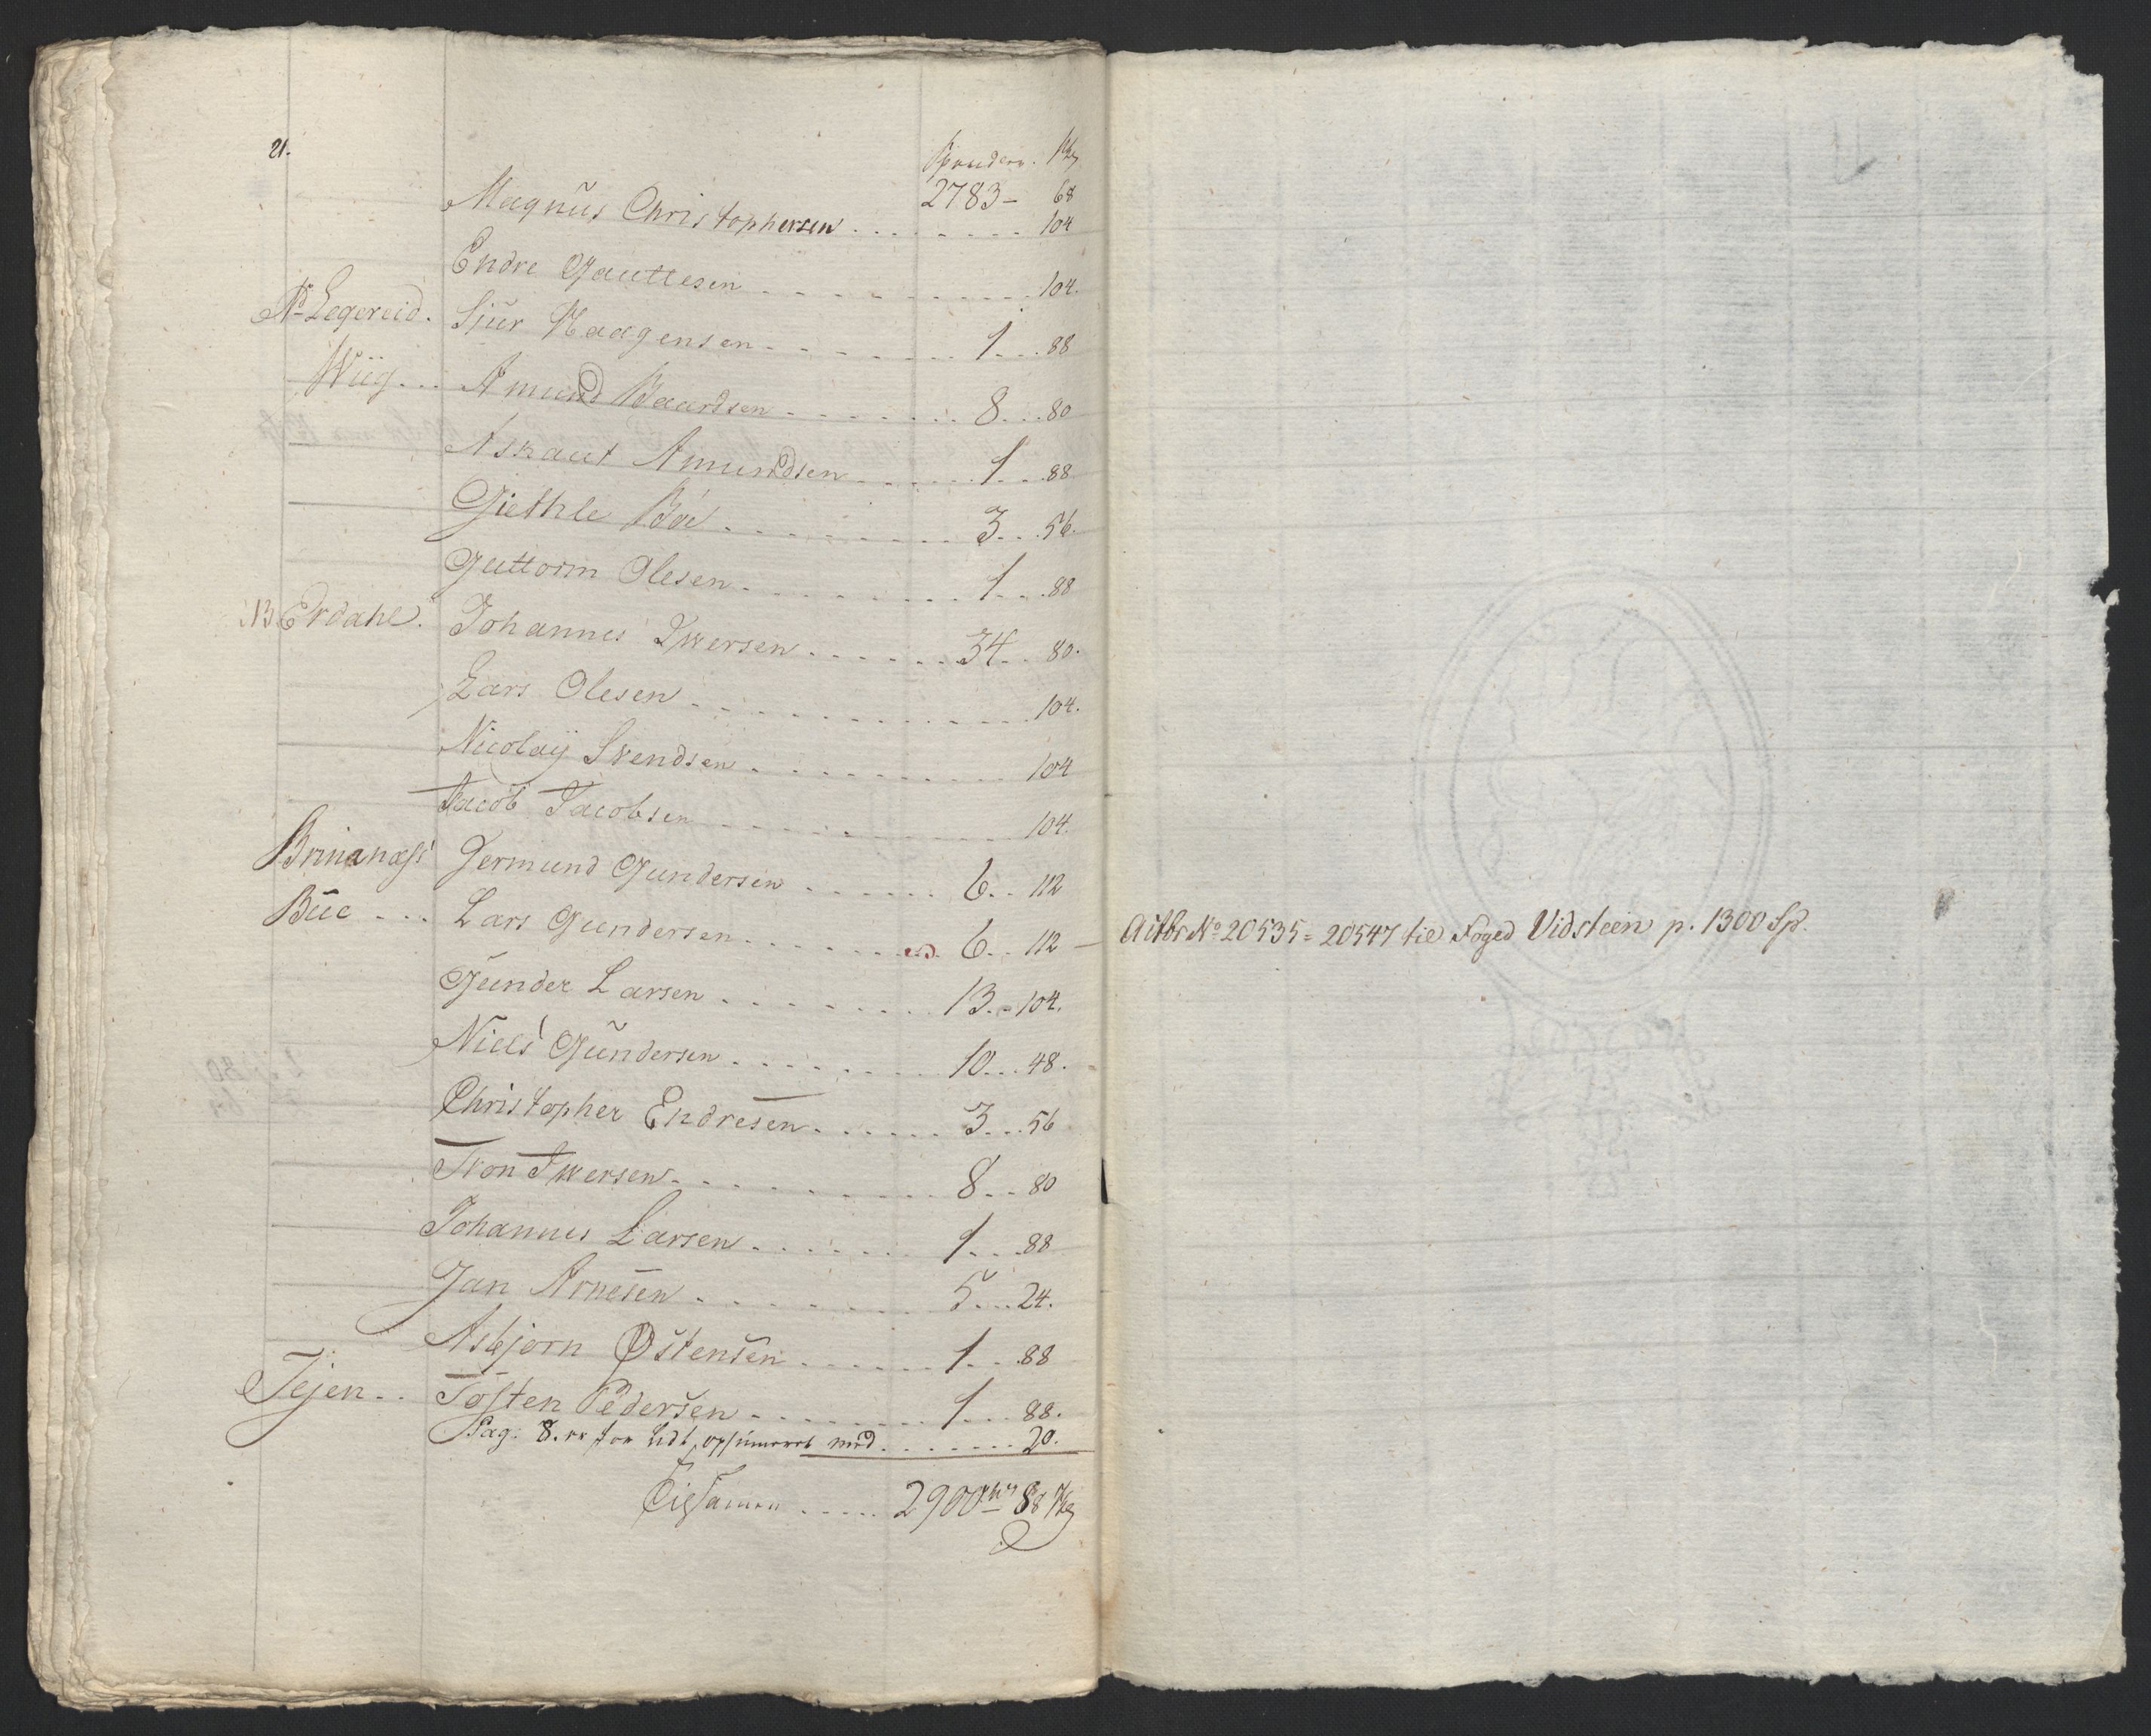 21.
Specier. ß
2783 - 68
Magnus Christophersen . . . . . . . . 104
Endre Gauttesen . . . . . . . . 104.
Nd. Legereid. Sjur Haagensen . . . . . . . 1 . . . 88
Wiig . . . Amund Baardsen . . . . . . . 8 . . . 80
Askaut Amundsen . . . . . . . 1 . . . 88
Giethle Boe . . . . . . . . 3 . . . 56.
Guttorm Olesen . . . . . . . . 1 . . . 88
Erdahl. Johannes Iwersen . . . . . . 34 . . 80.
Lars Olesen . . . . . . . . . 104.
Nicolaij Svendsen . . . . . . . . 104
Jacob Jacobsen . . . . . . . . 104.
Brimanæss Germund Gundersen . . . . . . 6 . . 112
Bue . . . Lars Gundersen . . . . . . . 6 . . 112 —
Gunder Larsen . . . . . . . . 13 . - 104.
Niels Gundersen . . . . . . . . 10 . . . 48.
Christopher Endresen . . . . . . 3 . . . 56
Iver Iwersen . . . . . . . . 8 . . 80
Johannes Larsen . . . . . . . 1 . . . 88
Jan Arnesen . . . . . . . . 5 . . . 24.
Asbjørn Østensen . . . . . . 1 . . . 88
Tejen . . Tosten Pedersen . . . . . . . . 1 . . . 88.
Pag: 8. er for lidt opsumeret med . . . . . . . 20.
Tilsamen . . . . . 2900 88 ß
Actbr No 20535 = 20547 til Foged Vidsteen p. 1300 Sp.